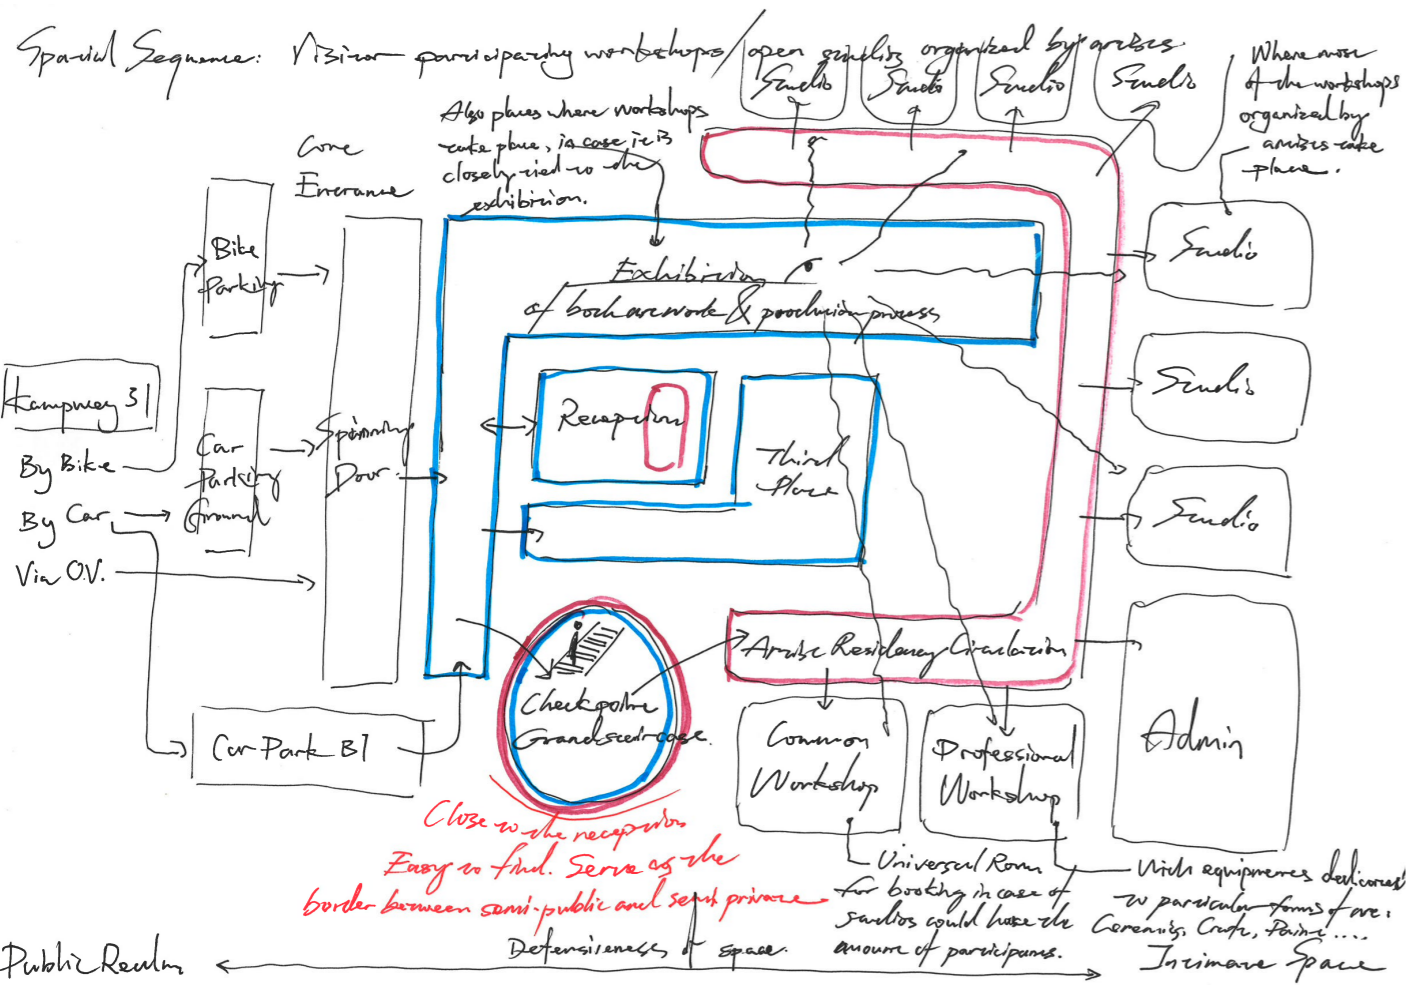 Spatial Sequence: Visitor participating workshops/open studios organized by artists.
Studio
Studio
Studio
Studio
Where most
of the workshops
organized by
artists take
place.
Also places where workshops
take place, in case it is
closely tied to the
exhibition.
Core
Entrance
Bike
Parking
Kampweg 31
By Bike
By Car
Via O.V.
Car
Parking
Ground
Spinning
Door
Car Park B1
Exhibition
of both artwork & production process
Reception
Third
Place
Checkpoint
Grand staircase.
Artist Residency Circulation
Studio
Studio
Studio
Admin
Common
Workshop
Professional
Workshop
Close to the reception
Easy to find. Serve as the
border between semi-public and semi private
Universal Room
for booking in case of
studios could host the
amount of participants.
With equipments dedicated
to particular forms of art:
Ceramics, Craft, Paint ....
Public Realm
Defensiveness of space.
Intimate Space